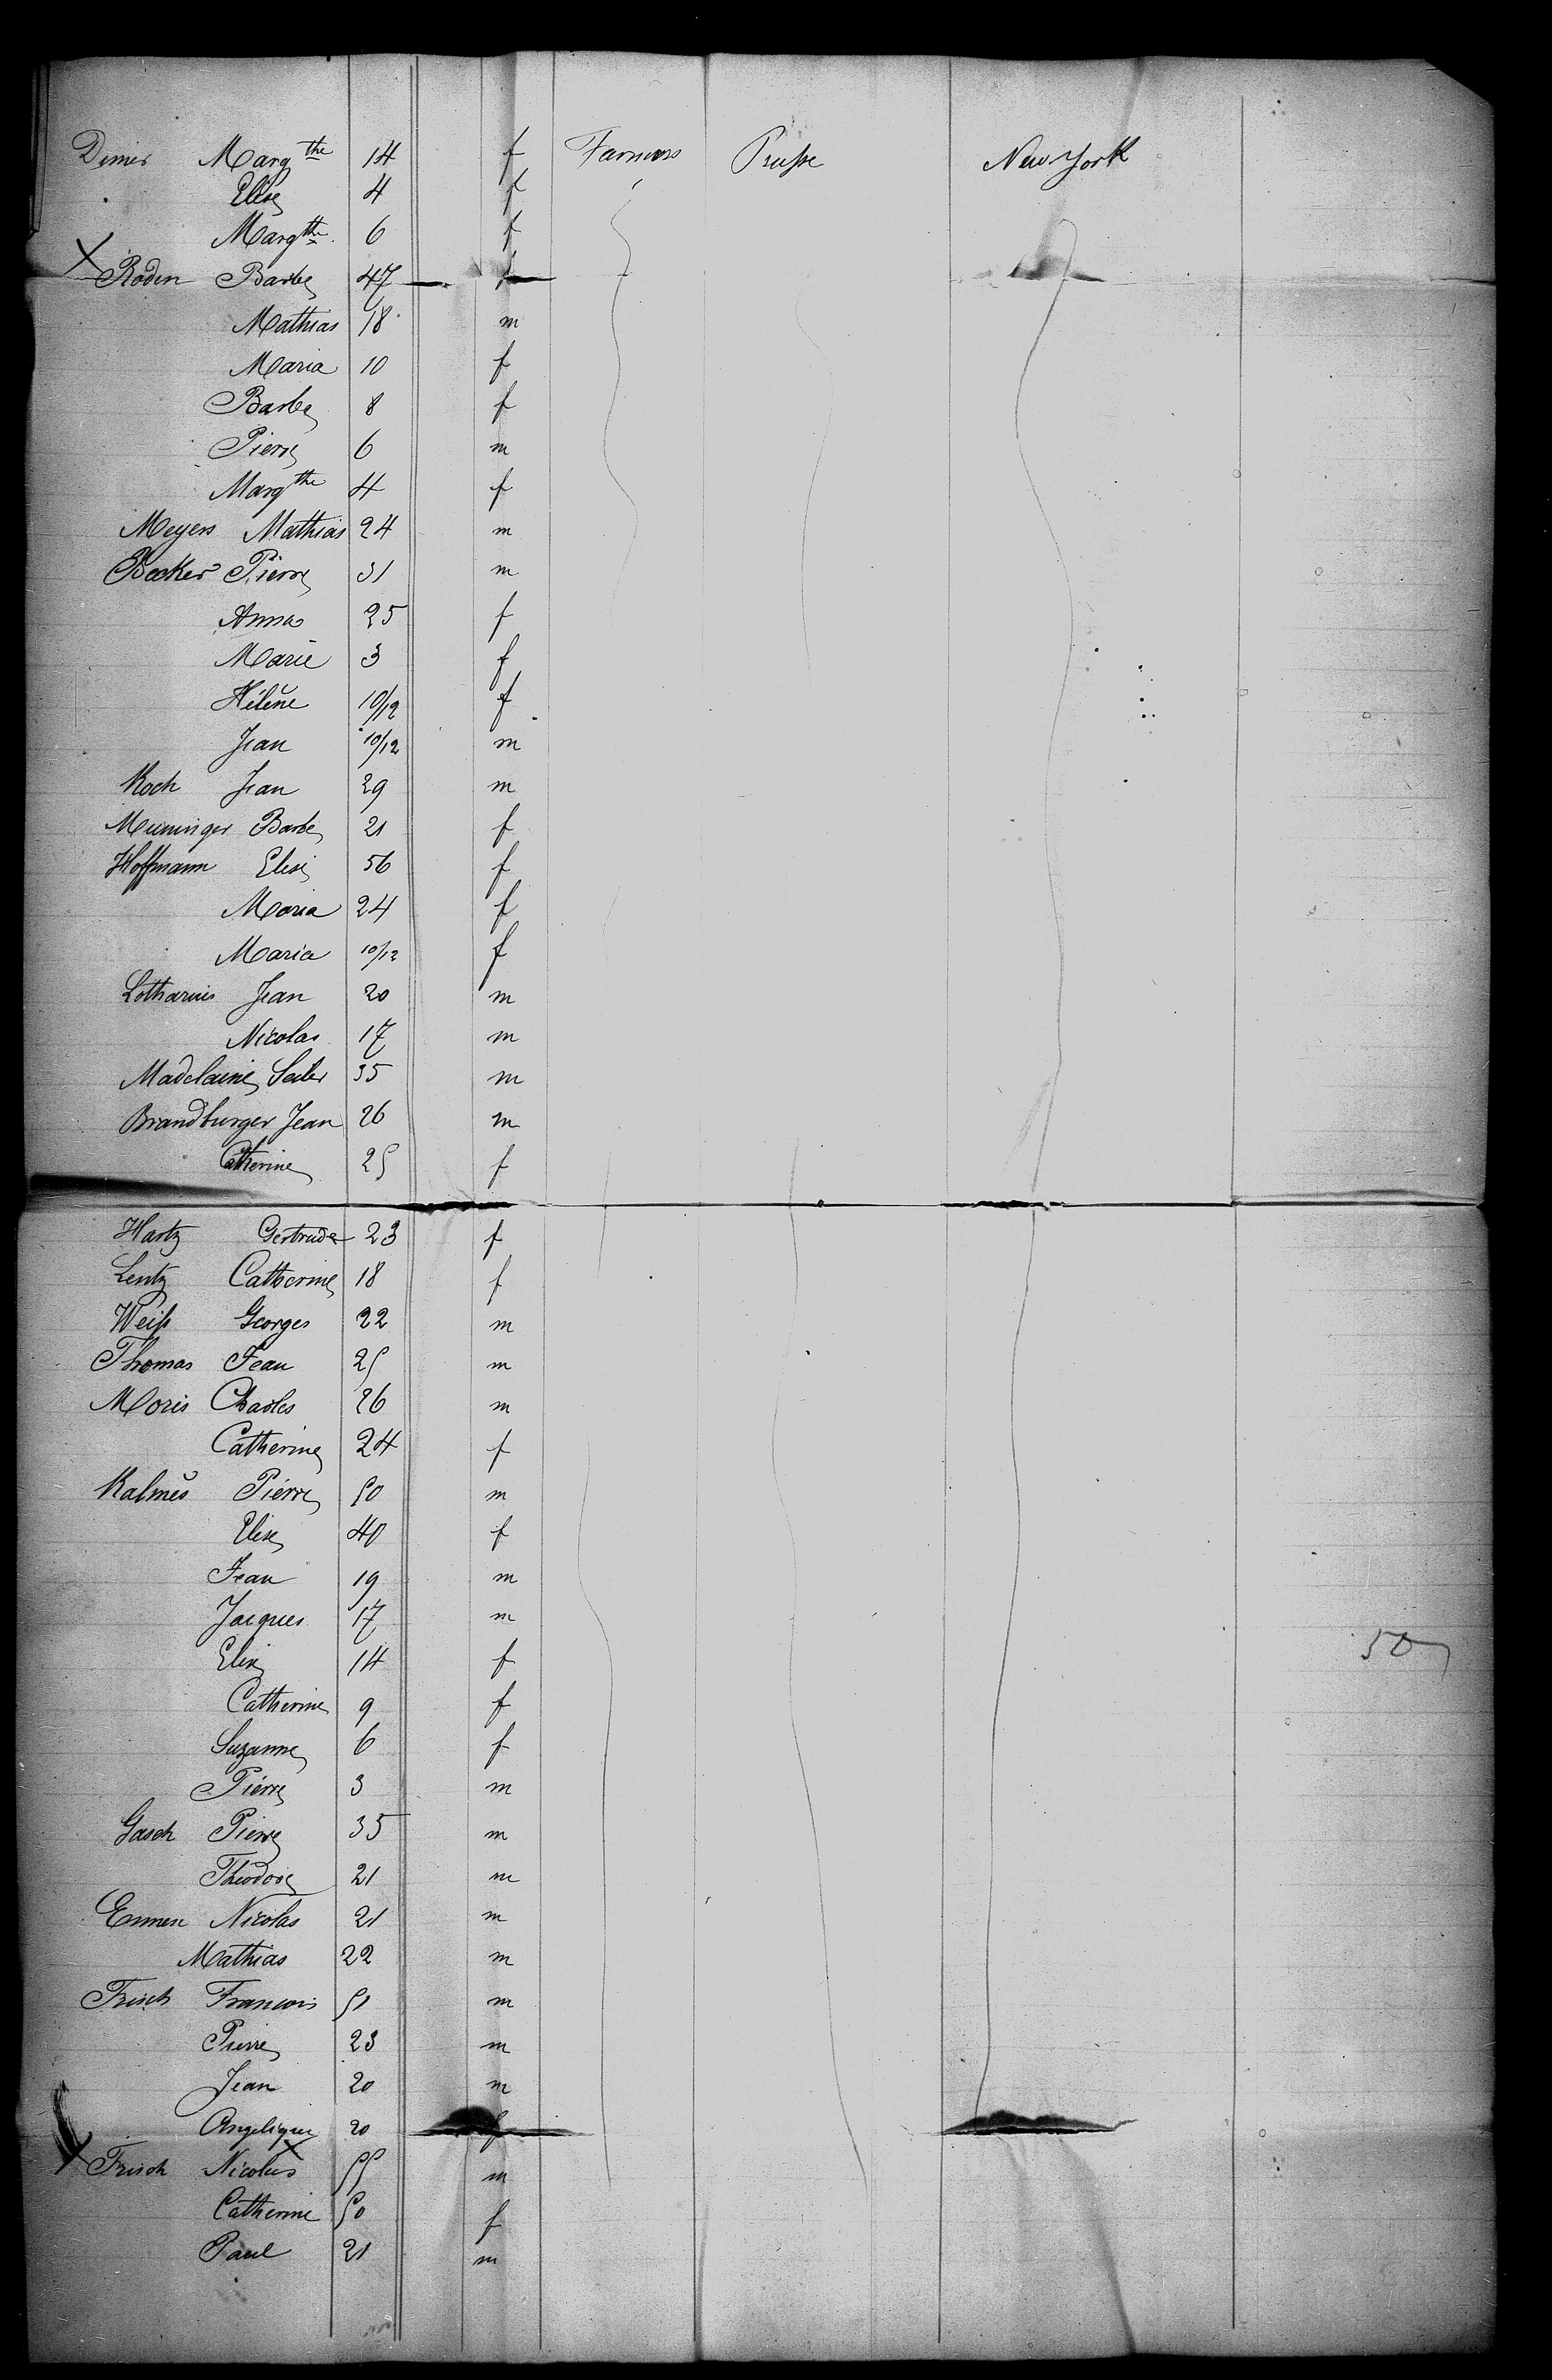 Dimer Margthe 14 f Farmers Prusse New York
Elise 4 f
Margthe 6 f
X Roden Barbe 47 f
Mathias 18 m
Maria 10 f
Barbe 8 f
Pierre 6 m
Margthe 4 f
Meyers Mathias 24 m
Becker Pierre 31 m
Anna 25 f
Marie 3 f
Hélène 10/12 f
Jean 10/12 m
Koch Jean 29 m
Meuninger Barbe 21 f
Hoffmann Elise 56 f
Maria 24 f
Maria 10/12 f
Lotharius Jean 20 m
Nicolas 17 m
Madelaine Seiler 35 m
Brandburger Jean 26 m
Catherine 25 f
Hartz Gertrude 23 f
Lentz Catherine 18 f
Weiss Georges 22 m
Thomas Jean 25 m
Moris Charles 26 m
Catherine 24 f
Kalmes Pierre 50 m
Elise 40 f
Jean 19 m
Jacques 17 m
Elise 14 f
50
Catherine 9 f
Suzanne 6 f
Pierre 3 m
Gasch Pierre 35 m
Théodore 21 m
Ennen Nicolas 21 m
Mathias 22 m
Frisch Francois 51 m
Pierre 23 m
Jean 20 m
Angelique 20 f
X Frisch Nicolas 55 m
Catherine 50 f
Paul 21 m